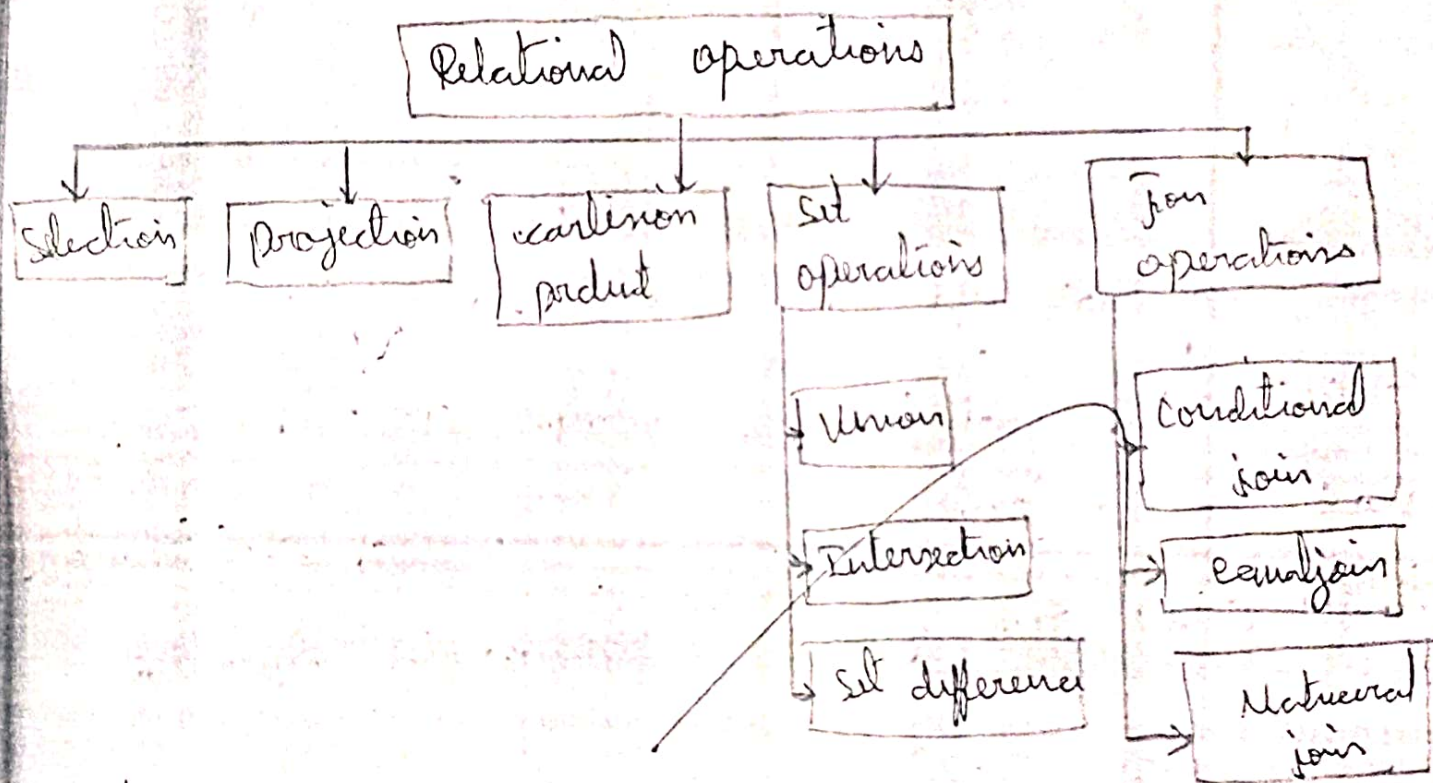 Relational operations
Selection
projection
cartinon
product
Set
operations
Join
operations
Union
Intersection
Set difference
Conditional
join
equaljoin
Natueral
join